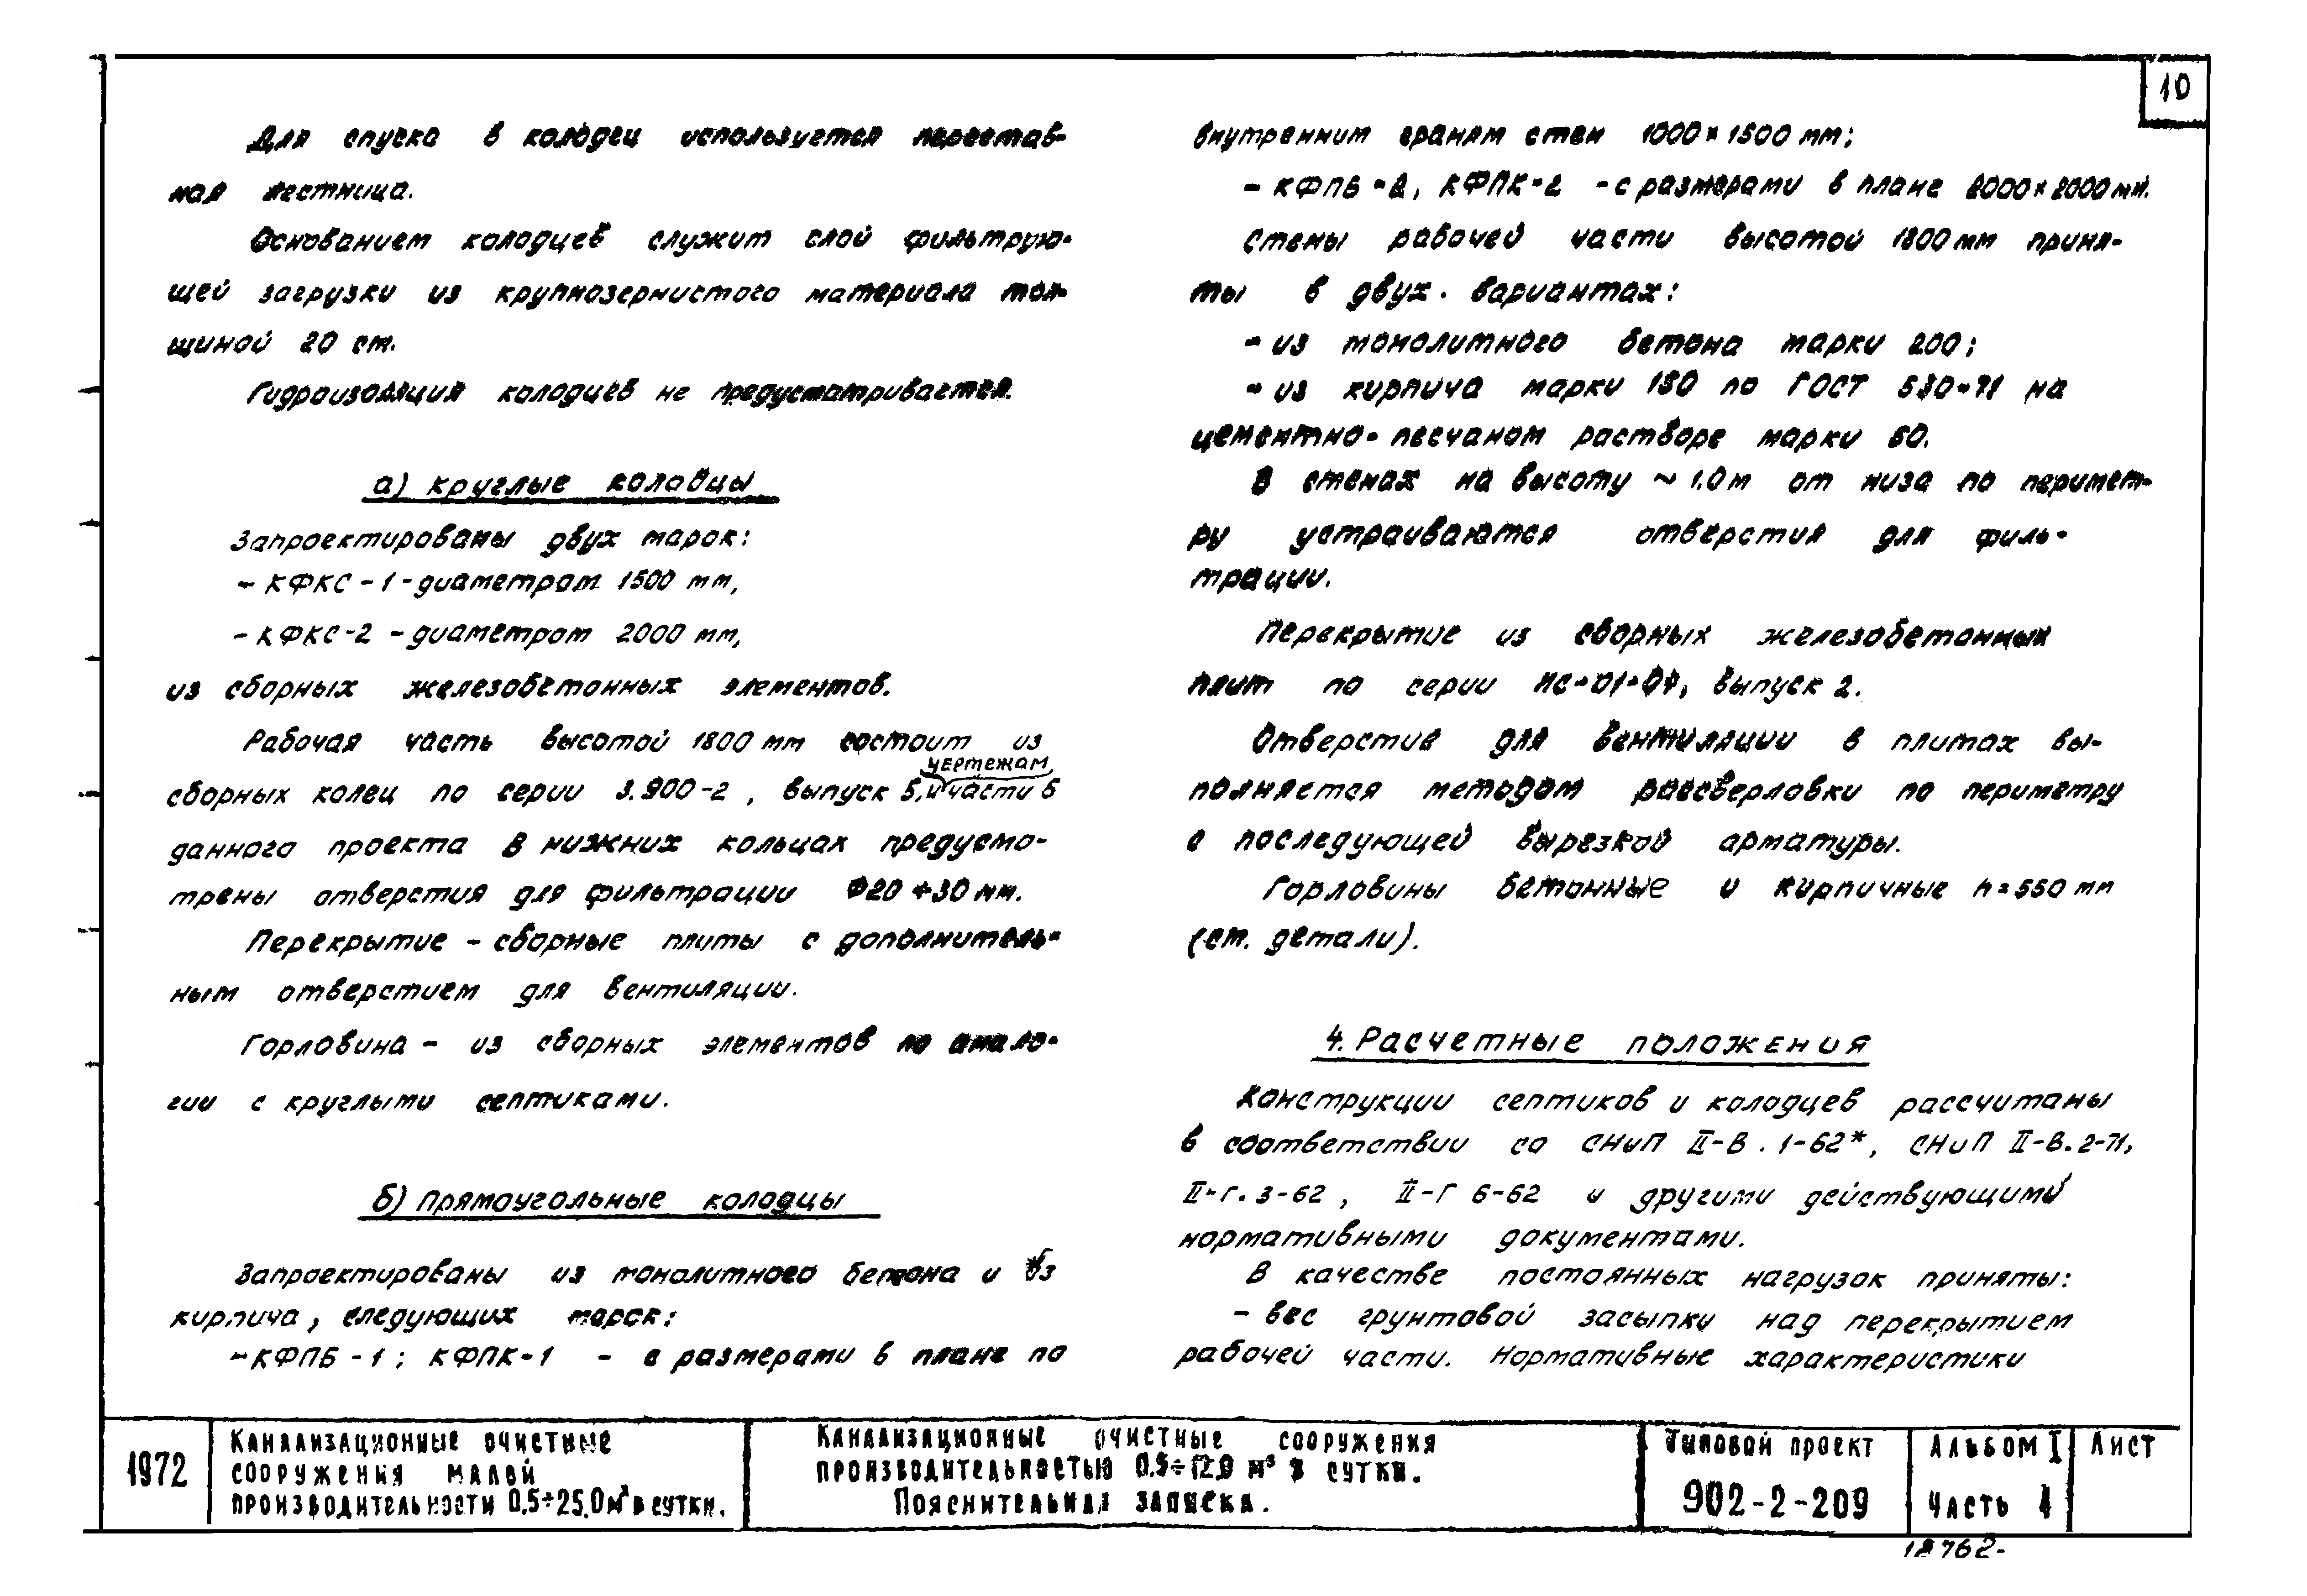 10
Для спуска в колодец используется перестав-
ная лестница.
Основанием колодцев служит слой фильтрую-
щей загрузки из крупнозернистого материала тол-
щиной 20 см.
Гидроизоляция колодцев не предусматривается.
а) круглые колодцы
Запроектированы двух марок:
- КФКС-1 - диаметром 1500 мм,
- КФКС-2 - диаметром 2000 мм,
из сборных железобетонных элементов.
Рабочая часть высотой 1800 мм состоит из
чертежам
сборных колец по серии 3.900-2, выпуск 5, и части 6
данного проекта В нижних кольцах предусмо-
трены отверстия для фильтрации Ф20÷30 мм.
Перекрытие - сборные плиты с дополнитель-
ным отверстием для вентиляции.
Горловина - из сборных элементов по анало-
гии с круглыми септиками.
б) прямоугольные колодцы
Запроектированы из монолитного бетона и из
кирпича, следующих марок:
- КФПБ-1; КФПК-1 - с размерами в плане по
внутренним граням стен 1000×1500 мм;
- КФПБ-2, КФПК-2 - с размерами в плане 2000×2000 мм.
Стены рабочей части высотой 1800 мм приня-
ты в двух вариантах:
- из монолитного бетона марки 200;
- из кирпича марки 150 по ГОСТ 530-71 на
цементно-песчаном растворе марки 50.
В стенах на высоту ~ 1.0 м от низа по перимет-
ру устраиваются отверстия для филь-
трации.
Перекрытие из сборных железобетонных
плит по серии ИС-01-04, выпуск 2.
Отверстие для вентиляции в плитах вы-
полняется методом рассверловки по периметру
с последующей вырезкой арматуры.
Горловины бетонные и кирпичные h=550 мм
(см. детали).
4. Расчетные положения
Конструкции септиков и колодцев рассчитаны
в соответствии со СНиП II-В.1-62*, СНиП II-В.2-71,
II-Г.3-62, II-Г 6-62 и другими действующими
нормативными документами.
В качестве постоянных нагрузок приняты:
- вес грунтовой засыпки над перекрытием
рабочей части. Нормативные характеристики
1972
Канализационные очистные
сооружения малой
производительности 0.5÷25.0 м³ в сутки.
Канализационные очистные сооружения
производительностью 0.5÷12.0 м³ в сутки.
Пояснительная записка.
Типовой проект
902-2-209
Альбом I
Часть 1
Лист
18762-